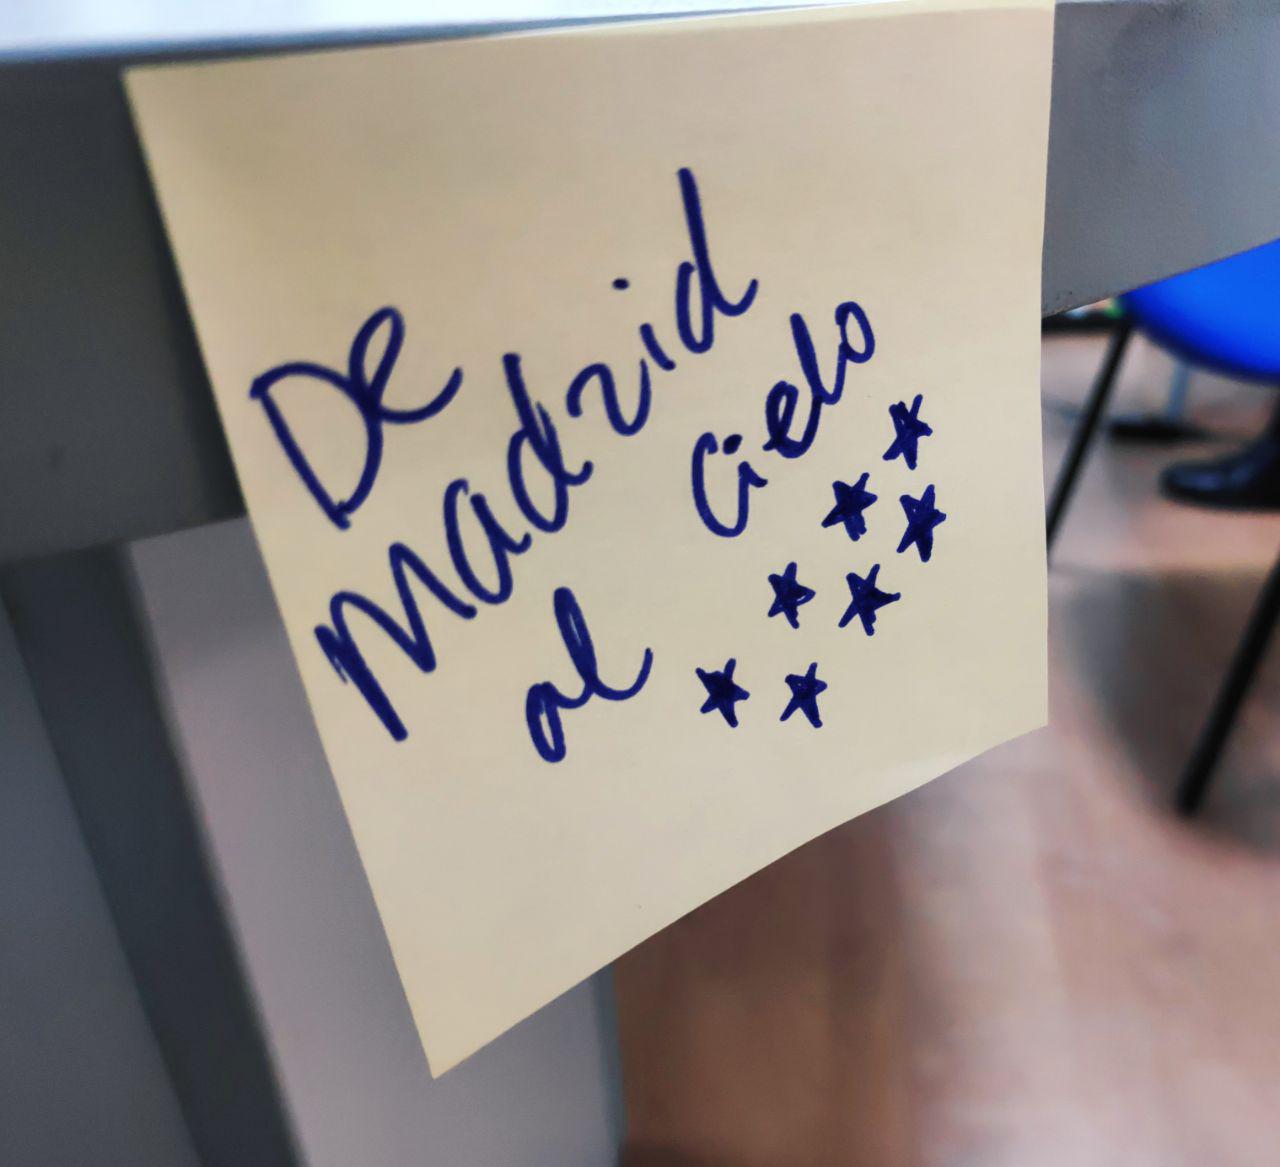 De
Madrid
al cielo